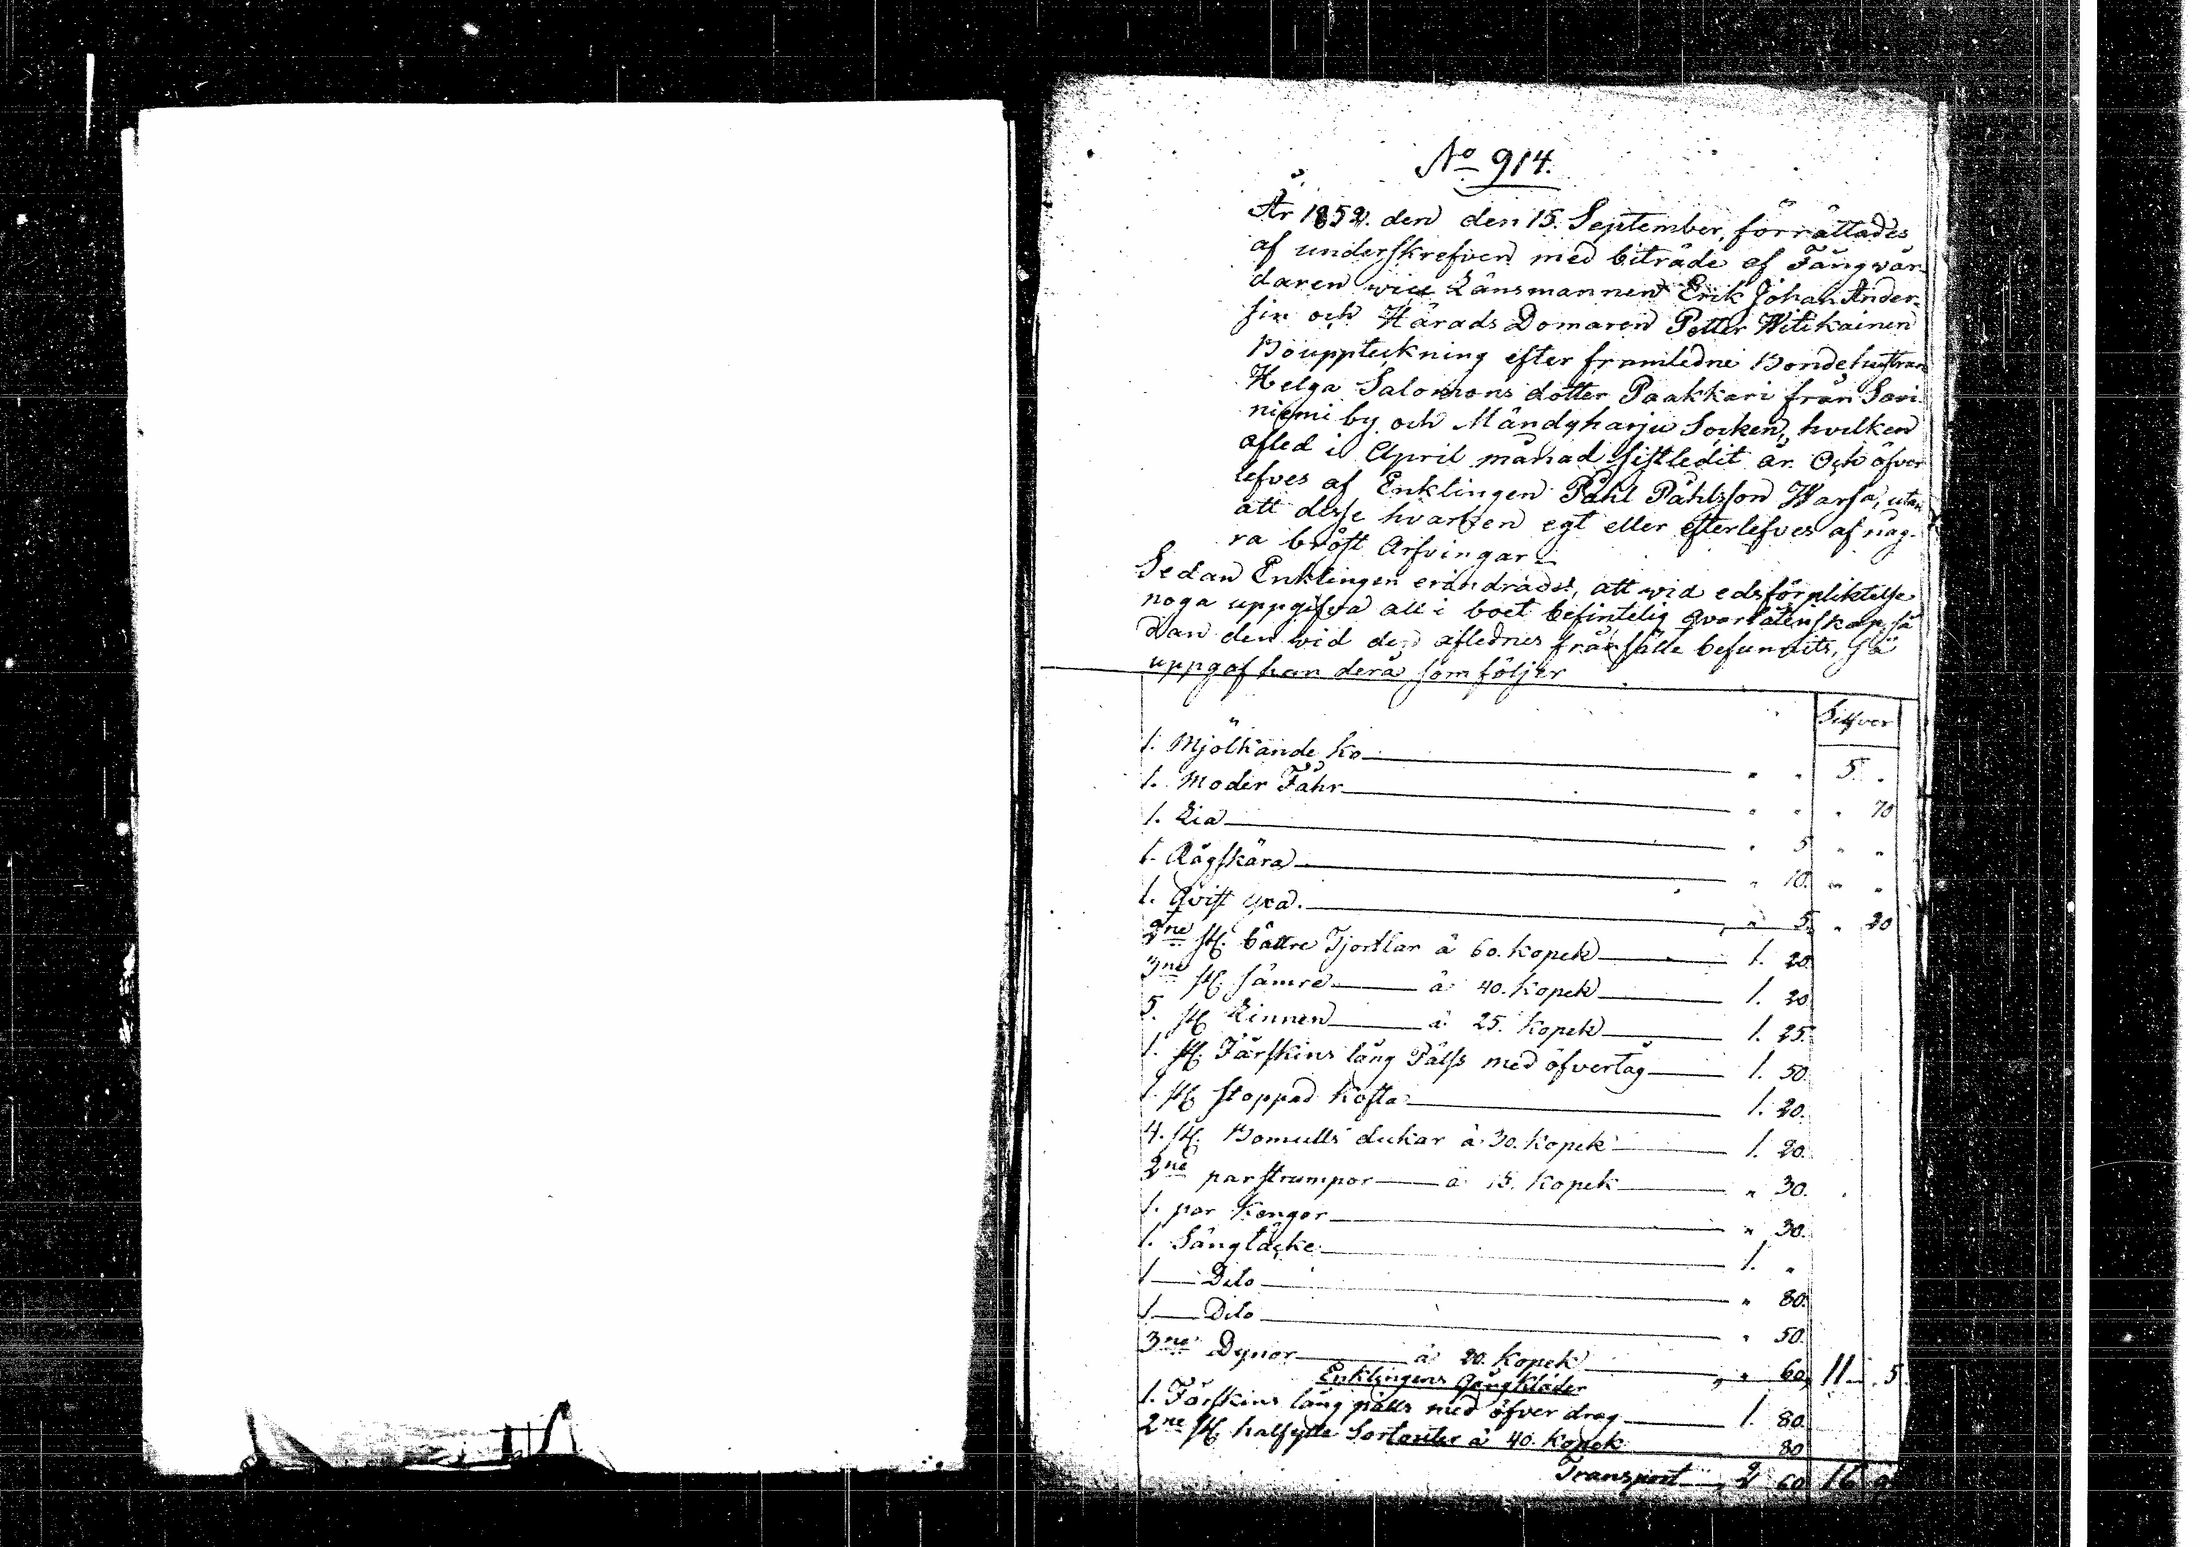 No 914.
År 1852. den den 15. September, förrättades
af underskrefven med biträde af Fångvår-
daren vice Länsmannen Erik Johan Ander-
sin och Härads Domaren Petter Witikainen
Bouppteckning efter framledne Bondehustrun
Helga Salomons dotter Paakkari från Sari-
niemi by och Mändyharju Socken, hvilken
afled i April månad sistledit år. Och öfver
lefves af Enklingen Påhl Påhlsson Warsa, utan
att desse hvarken egt eller efterlefves af någ-
ra bröst Arfvingar
Sedan Enklingen erindrades, att vid edsförpliktelse
noga uppgifva all i boet befintelig qvarlåtenskap så
dan den vid den aflednes frånfälle befunnits, så
uppgaf han derå som följer
Silfver
1. Mjölkande ko " " 5 "
1. Moder Fåhr " " " 70
1. Lia " 5 " "
1. Rågskära " 10. " "
1. Qvist yxa. " 5 " 20
2ne st. bättre Tjortlar à 60. kopek 1. 20
3ne st sämre à 40. kopek 1. 20
5. st Linnen à 25. kopek 1. 25.
1. st. Fårskins lång Pälss med öfvertåg 1. 50.
1. st stoppad kofta 1. 20.
4. st. Bomulls dukar à 30. kopek 1. 20.
2ne par strumpor à 15. kopek " 30.
1. par Kengor " 30.
1. Sängtäcke 1. "
1 Dito " 80.
1 Dito " 50.
3ne Dynor à 20. kopek " 60 11 5
Enklingens Gångkläder
1. Fårskins lång pälls med öfver drag 1. 80.
2ne st halfsytte à 40. kopek 80
Transport 2 60 16